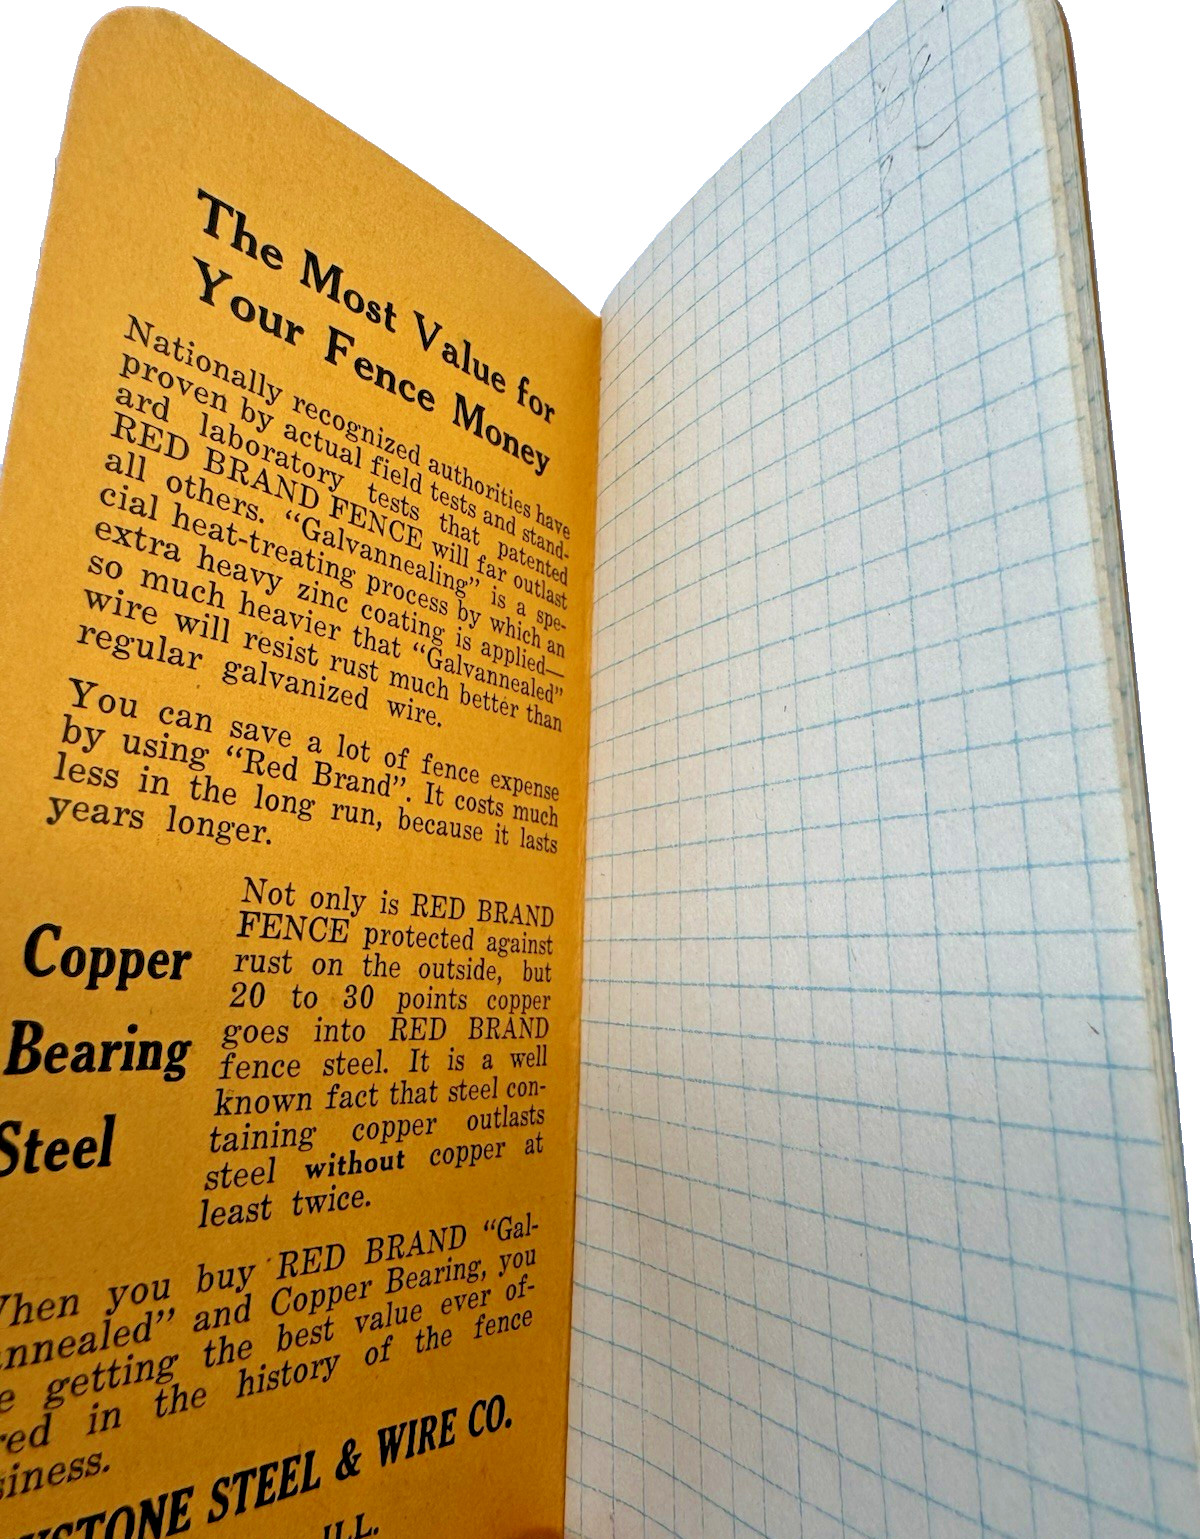 The Most Value for
Your Fence Money
Nationally recognized authorities have
proven by actual field tests and stand-
ard laboratory tests that patented
RED BRAND FENCE will far outlast
all others. “Galvannealing” is a spe-
cial heat-treating process by which an
extra heavy zinc coating is applied—
so much heavier that “Galvannealed”
wire will resist rust much better than
regular galvanized wire.
You can save a lot of fence expense
by using “Red Brand”. It costs much
less in the long run, because it lasts
years longer.
Copper
Bearing
Steel
Not only is RED BRAND
FENCE protected against
rust on the outside, but
20 to 30 points copper
goes into RED BRAND
fence steel. It is a well
known fact that steel con-
taining copper outlasts
steel without copper at
least twice.
hen you buy RED BRAND “Gal-
nnealed” and Copper Bearing, you
e getting the best value ever of-
red in the history of the fence
siness.
STONE STEEL & WIRE CO.
ILL.